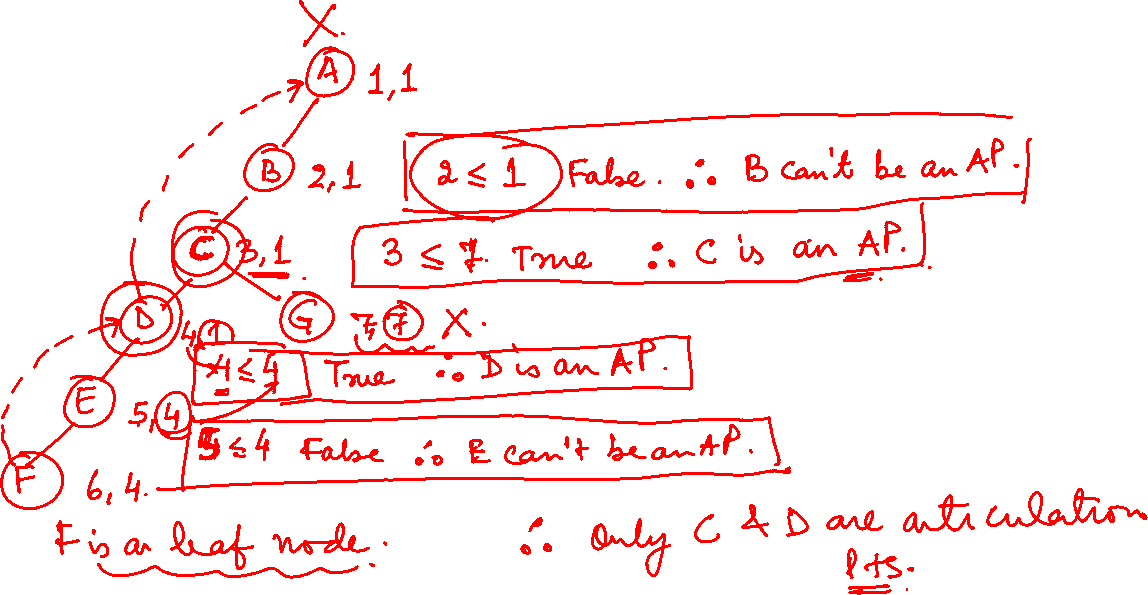 X.
A 1,1
B 2,1 2 ≤ 1 False. ∴ B can't be an AP.
C 3,1 3 ≤ 7. True ∴ C is an AP.
D 4,1 G 7,7 X.
4 ≤ 4 True ∴ D is an AP.
E 5,4
5 ≤ 4 False ∴ E can't be an AP.
F 6,4.
F is a leaf node. ∴ Only C & D are articulation
pts.